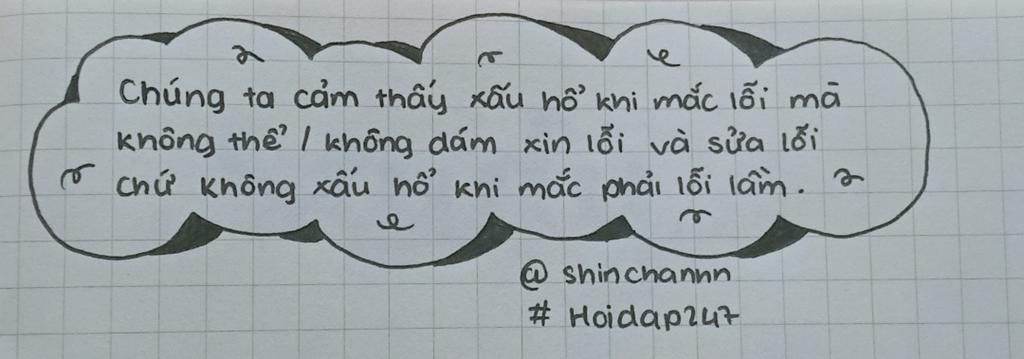 Chúng ta cảm thấy xấu hổ khi mắc lỗi mà
không thể / không dám xin lỗi và sửa lỗi
chứ không xấu hổ khi mắc phải lỗi lầm.
@ shinchannn
# Hoidap247